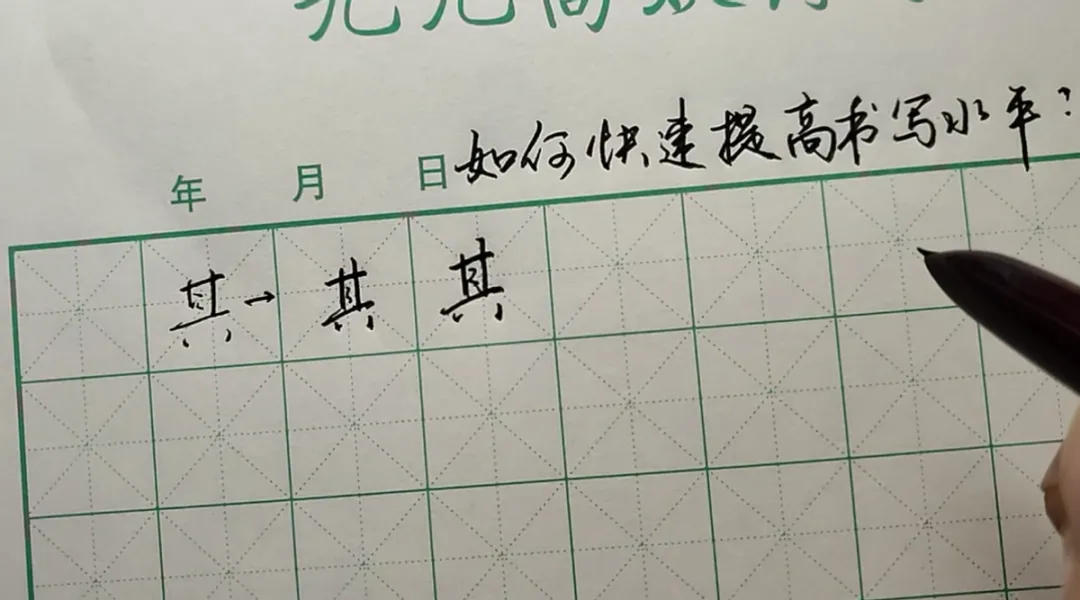 年 月 日 如何快速提高书写水平?
其→ 其 其